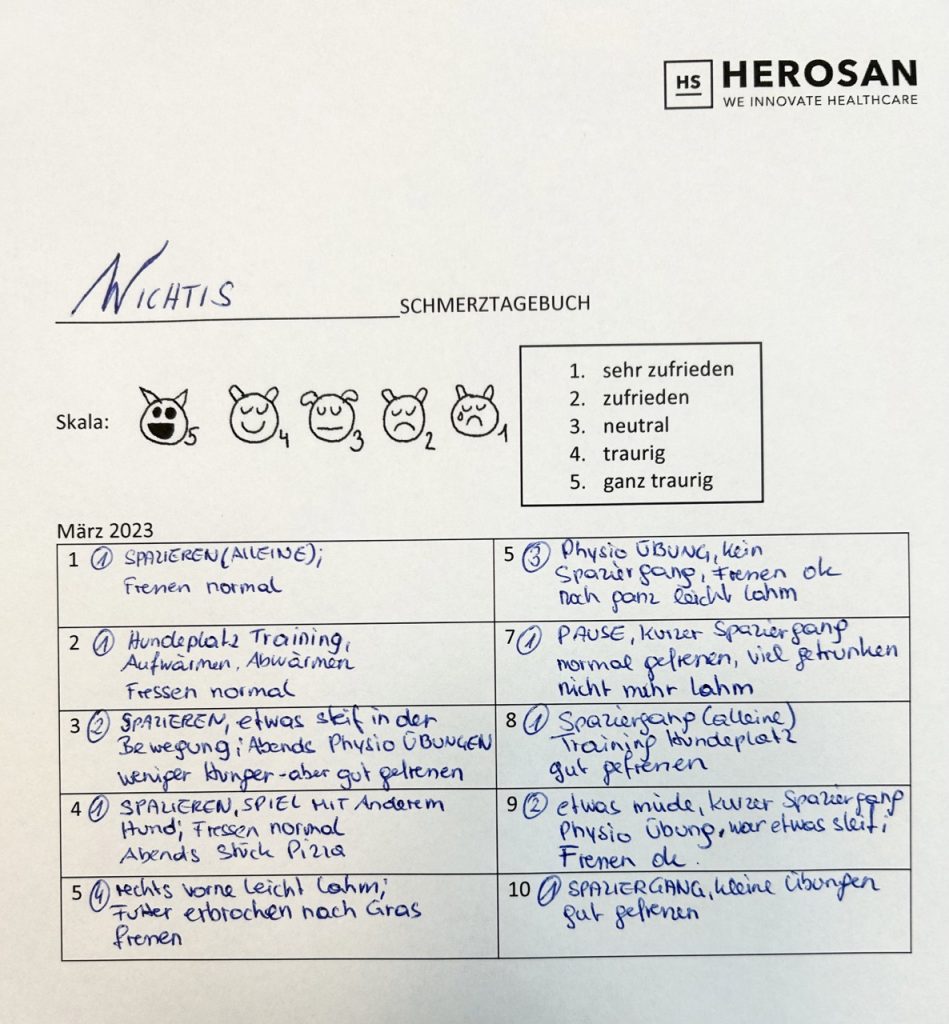 HS HEROSAN
WE INNOVATE HEALTHCARE
WICHTIS SCHMERZTAGEBUCH
Skala: 5 4 3 2 1
1. sehr zufrieden
2. zufrieden
3. neutral
4. traurig
5. ganz traurig
März 2023
1 1 SPAZIEREN (ALLEINE);
Fressen normal
2 1 Hundeplatz Training,
Aufwärmen, Abwärmen
Fressen normal
3 2 SPAZIEREN, etwas steif in der
Bewegung; Abends Physio ÜBUNGEN
weniger Hunger - aber gut gefressen
4 1 SPAZIEREN, SPIEL MIT Anderem
Hund; Fressen normal
Abends Stück Pizza
5 4 rechts vorne leicht lahm;
Futter erbrochen nach Gras
fressen
5 3 Physio ÜBUNG, kein
Spaziergang, Fressen ok
noch ganz leicht lahm
7 1 PAUSE, kurzer Spaziergang
normal gefressen, viel getrunken
nicht mehr lahm
8 1 Spaziergang (alleine)
Training Hundeplatz
gut gefressen
9 2 etwas müde, kurzer Spaziergang
Physio Übung, war etwas steif;
Fressen ok.
10 1 SPAZIERGANG, kleine Übungen
gut gefressen